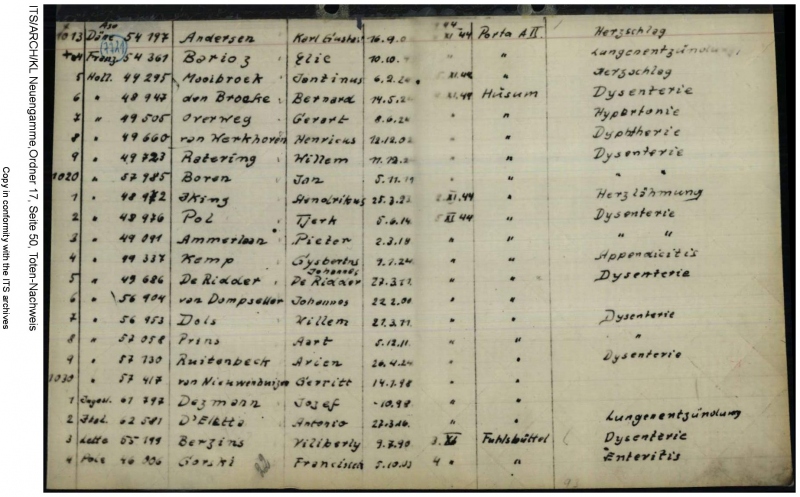 ITS/ARCH/KL Neuengamme, Ordner 17, Seite 50, Toten-Nachweis
Copy in conformity with the ITS archives
Aso 44
1013 Däne 54 797 Andersen Karl XI 44 Porta A II Herzschlag
(7721)
Franz 54 361 Barioz Elie 10.10. " " Lungenentzündung
5 Holl. 49 295 Mooibroek Jantinus XI.44 " Herzschlag
6 " 48 947 den Broeke Bernard 14.5.2 XI.44 Husum Dysenterie
7 " 49 505 Overweg Gerart 8.6.2 " " Hypertonie
8 " 49 660 van Werkhoven Henricus 12.12.02 " " Dyphtherie
9 " 49 723 Ratering Willem 11.12. " " Dysenterie
1020 " 57 985 Boren Jan 5.11.11 " " " "
1 " 48 972 Iking Hendrikus 25.3.2 XI.44 " Herzlähmung
2 " 48 976 Pol Tjerk 5.6.14 XI 44 " Dysenterie
3 " 49 091 Ammerlaan Pieter 2.3.19 " " " "
4 " 49 337 Kemp Gysbertus Johannes 9.2.24 " " Appendicitis
5 " 49 686 De Ridder De Ridder " " Dysenterie
6 " 56 904 van Dompseller Johannes 22.2.00 " "
7 " 56 953 Dols Willem " " Dysenterie
8 " 57 058 Prins Aart 5.12.11 " " "
9 " 57 130 Ruitenbeck Arien 20.4.24 " " Dysenterie
1030 " 57 417 van Nieuwenhuizen Gerritt 14.1.98 " "
1 Jugosl. 61 797 Dezmann Josef -10.98 " "
2 Ital. 62 581 D'Eletto Antonio " " Lungenentzündung
3 Lette 55 199 Berzins Viliberty 9.7.90 3. XI Fuhlsbüttel Dysenterie
4 Pole 46 006 Gorski Francisich 5.10.03 4 " " Enteritis